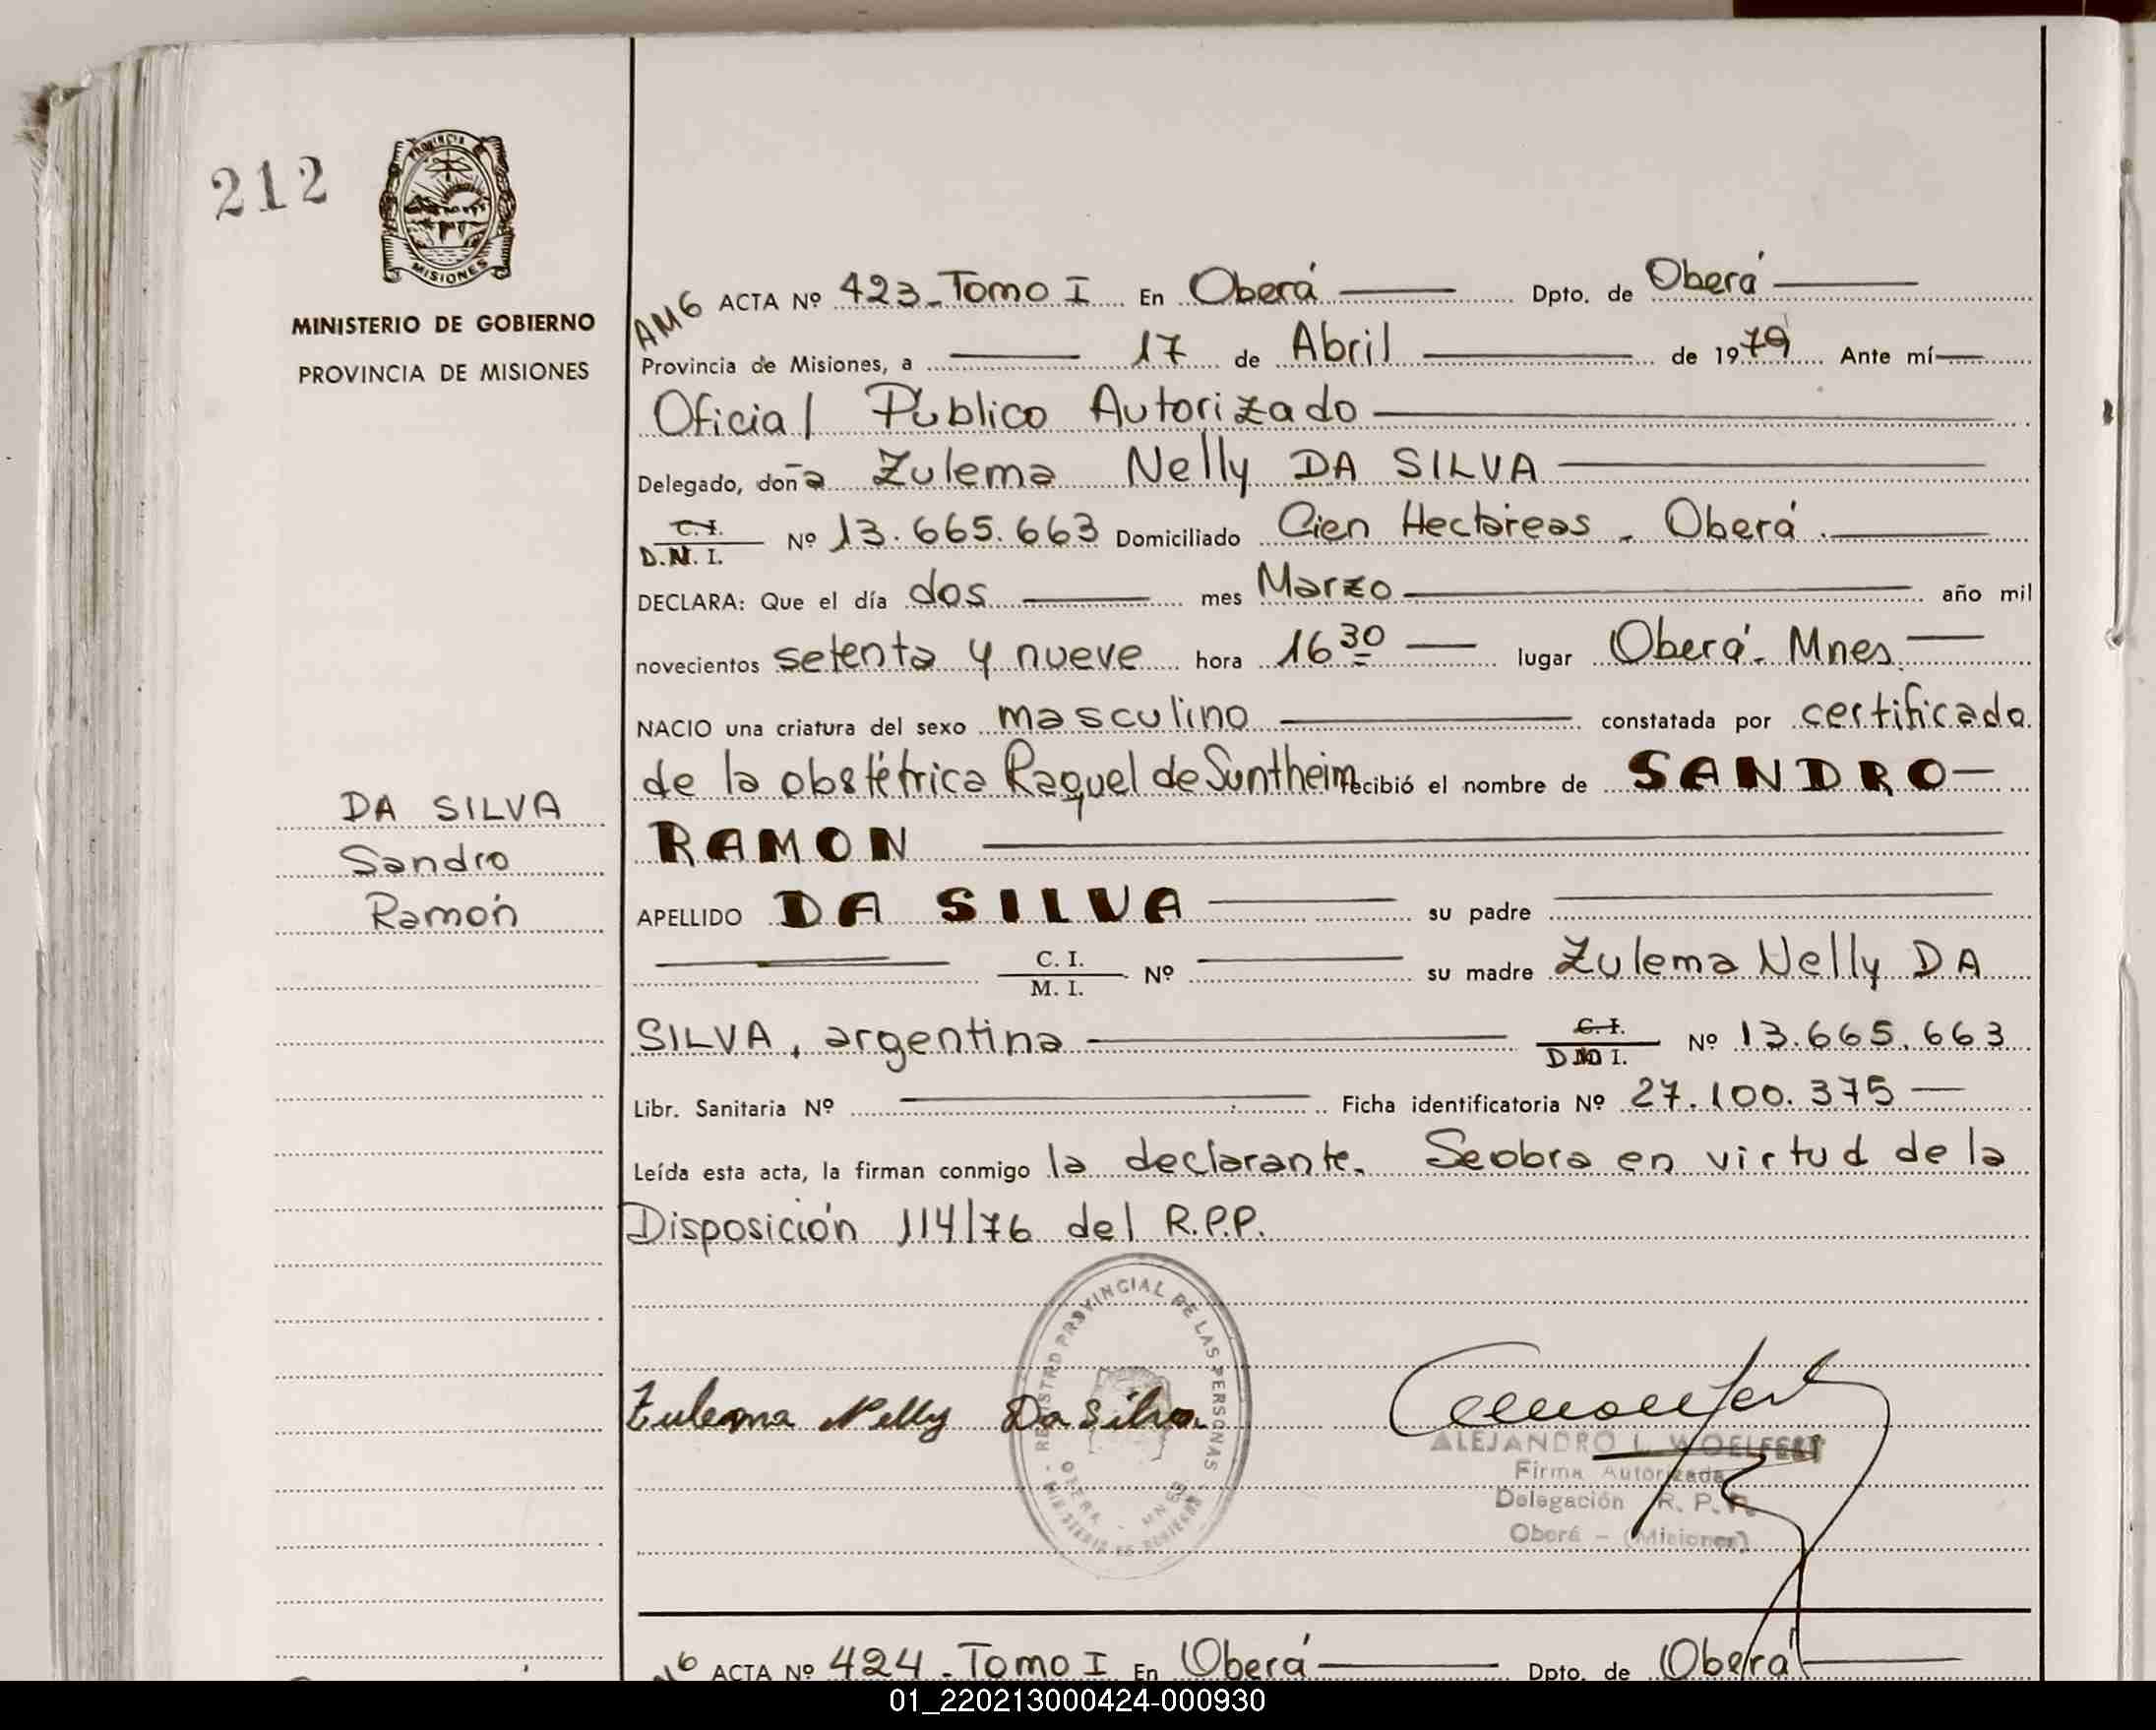 212
PROVINCIA DE
MISIONES
MINISTERIO DE GOBIERNO
PROVINCIA DE MISIONES
DA SILVA
Sandro
Ramón
AM6 ACTA Nº 423_ Tomo I En Oberá Dpto. de Oberá
Provincia de Misiones, a 17 de Abril de 1979 Ante mí
Oficial Publico Autorizado
Delegado, doña Zulema Nelly DA SILVA
C.I. D.N.I. Nº 13.665.663 Domiciliado Cien Hectáreas - Oberá.
DECLARA: Que el día dos mes Marzo año mil
novecientos setenta y nueve hora 16 30 lugar Oberá - Mnes.
NACIO una criatura del sexo masculino constatada por certificado
de la obstétrica Raquel de Suntheim recibió el nombre de SANDRO
RAMON
APELLIDO DA SILVA su padre
C. I. M. I. Nº su madre Zulema Nelly DA
SILVA, argentina C.I. DNI. Nº 13.665.663
Libr. Sanitaria Nº Ficha identificatoria Nº 27.100.375
Leída esta acta, la firman conmigo la declarante. Seobra en virtud de la
Disposición 114/76 del R.P.P.
REGISTRO PROVINCIAL DE LAS PERSONAS
OBERA - MNES
MINISTERIO DE GOBIERNO
Zulema Nelly Da Silva.
ALEJANDRO L. WOELFERT
Firma Autorizada
Delegación R. P. P.
Oberá - (Misiones)
ACTA Nº 424 - Tomo I En Oberá Dpto. de Oberá
01_220213000424-000930